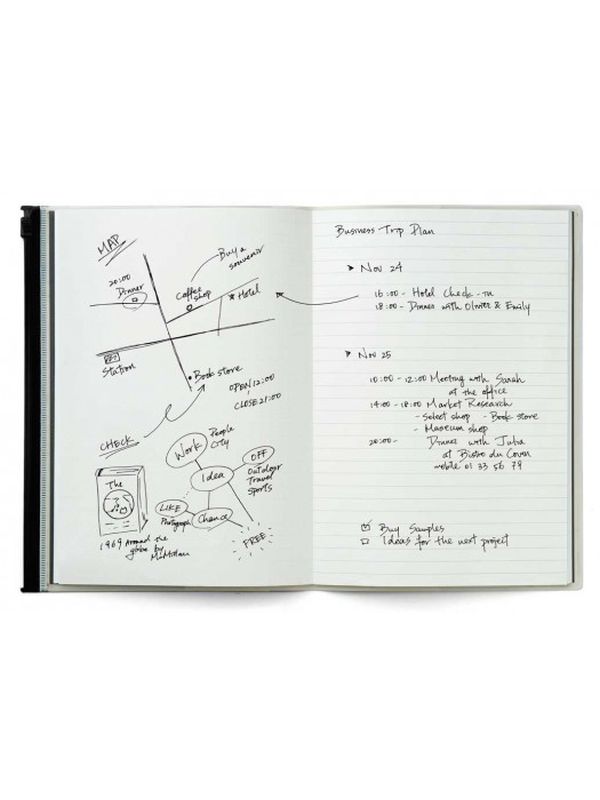 MAP
20:00
Dinner
Buy a
souvenir
Coffee
shop
Hotel
Station
Book store
OPEN 12:00
CLOSE 21:00
CHECK
The
1969 Around the
globe by
Work
People
City
OFF
Outdoor
Travel
Sports
Idea
LIKE
Photograph
Chance
FREE
Business Trip Plan
Nov 24
16:00 - Hotel Check-in
18:00 - Dinner with Oliver & Emily
Nov 25
10:00 - 12:00 Meeting with Sarah
at the office
14:00 - 18:00 Market Research
- Select shop - Book store
- Museum shop
20:00 - Dinner with Julia
at Bistro du Coven
mobile 01 33 56 79
Buy Samples
Ideas for the next project